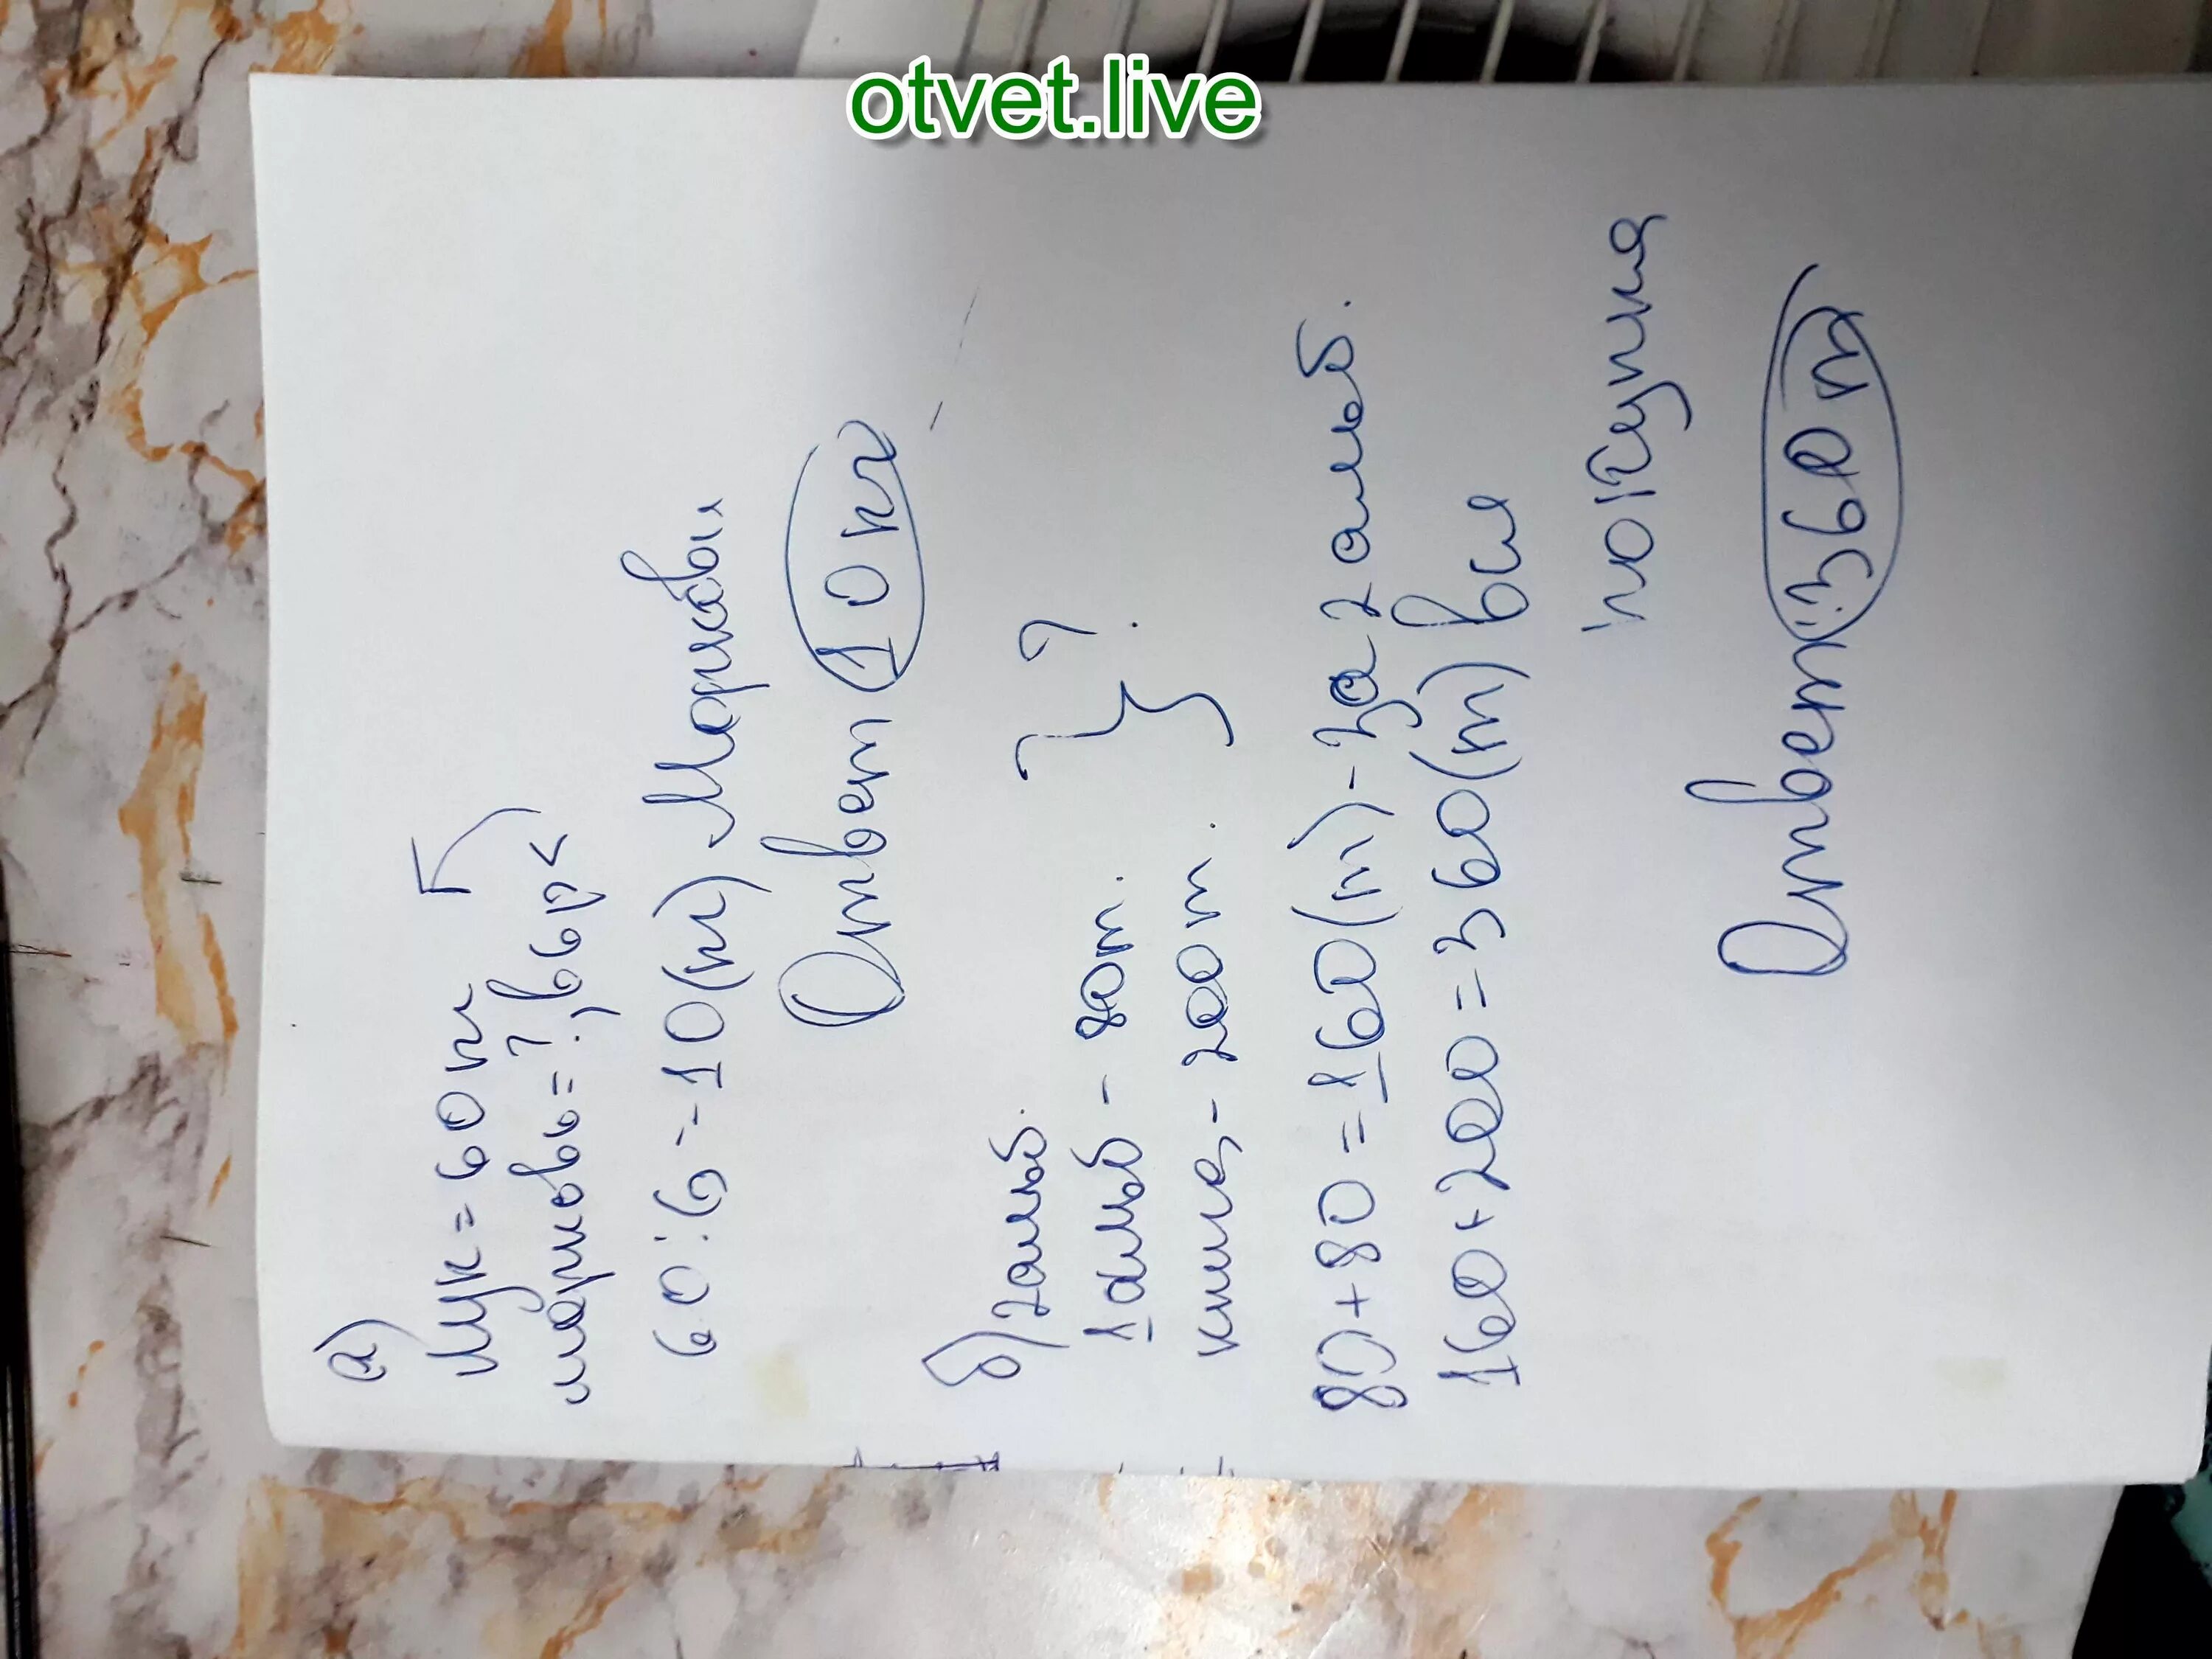 otvet.live
а)
Лук = 60 кг
морковь = ?, в 6 р <
60 : 6 = 10 (кг) Моркови
Ответ 10 кг
б) 2 альб.
1 альб - 80т.
книга - 200т. } ?
80 + 80 = 160 (т) - за 2 альб.
160 + 200 = 360 (т) вся
покупка
Ответ: 360 т